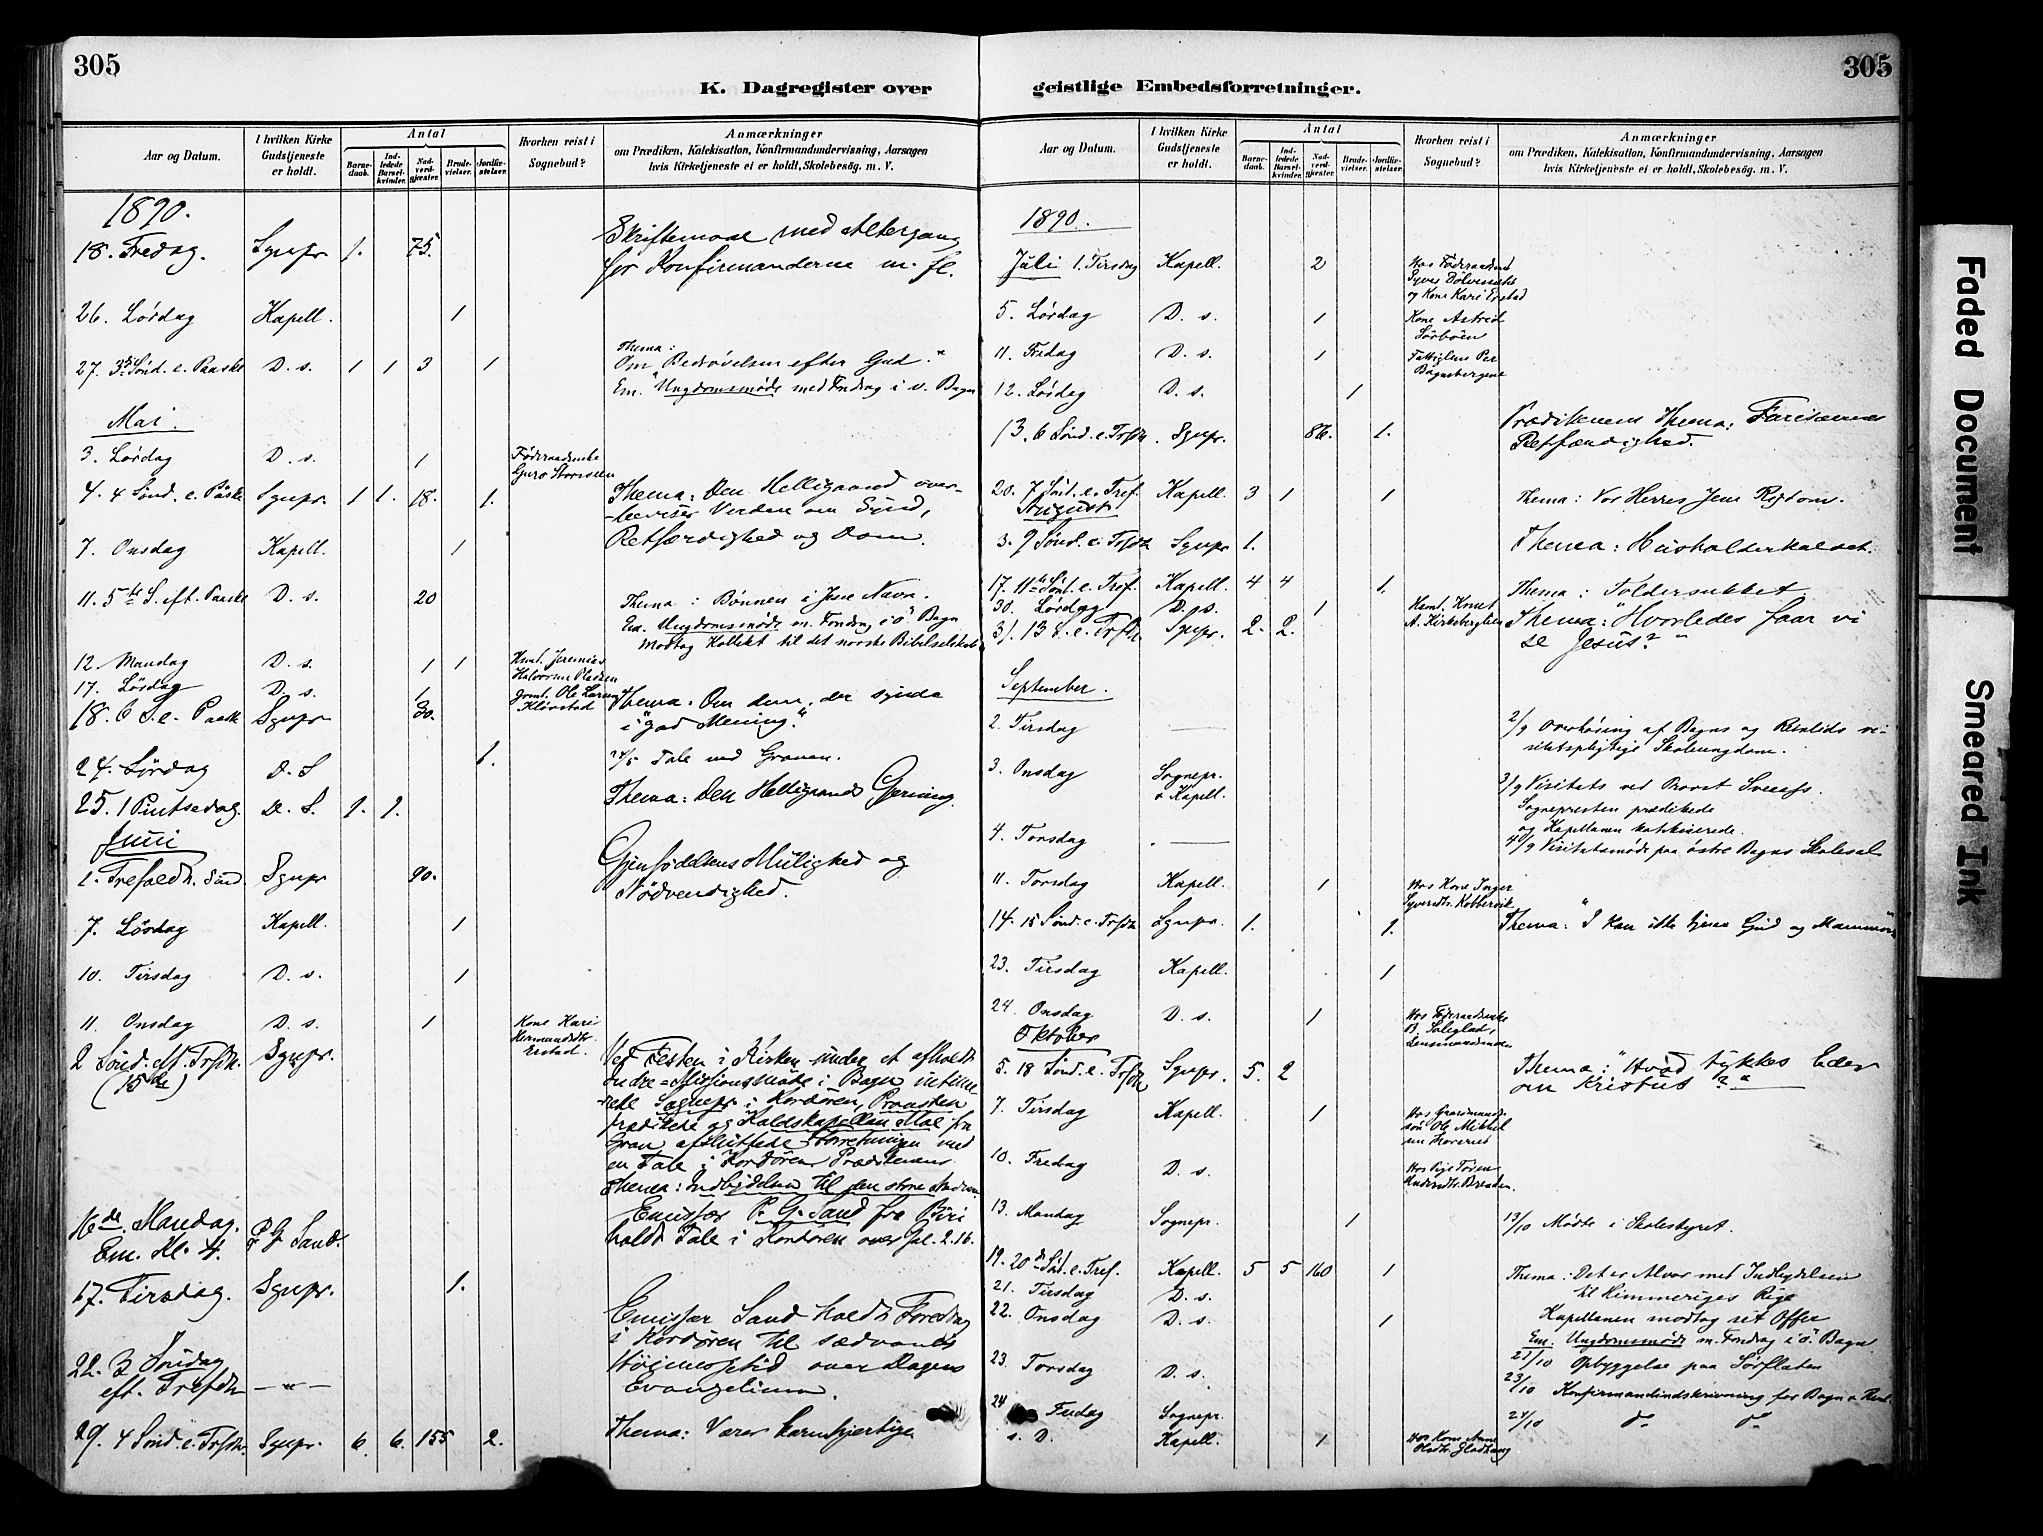 305
K. Dagregister over
Aar og Datum.
I hvilken Kirke Gudstjeneste er holdt.
Antal
Barne-daab.
Ind-ledede Barsel-kvinder.
Nad-verd-gjester.
Brude-vielser.
Jordfæ-stelser.
Hvorhen reist i Sognebud?
Anmærkninger
om Prædiken, Katekisation, Konfirmandundervisning, Aarsagen
hvis Kirketjeneste ei er holdt, Skolebesøg. m. V.
1890.
Skriftemaal med Altergang
18. Fredag. Sgnpr 1. 75. for Konfirmanderne m. fl.
26. Lørdag Kapell. 1
Thema:
27. 3die Sønd. e. Paaske D. s. 1 1 3 1 Om Bedrøvelsen efter Gud."
Em. Ungdomsmøde med Foredrag i v. Bagn
Mai.
3. Lørdag D. s. 1 Føderaadsenke
Guro
4. 4 Sønd. e. Påske Sgnpr. 1 1. 18. 1. Thema: Den Helligaand over-
-beviser Verden om Synd,
7. Onsdag Kapell. 1 Retfærdighed og Dom.
11. 5te S. eft. Paaske D. s. 20 Thema: Bønnen i Jesu Navn.
Em. Ungdomsmøde m. Foredrag i ø. Bagn
Modtog Kollekt til det norske Bibelselskab
12. Mandag D. s. 1 1 Hmt. Jeremias
Halvorsen
17. Lørdag D. s. 1 Grmt. Ole Larsen
Klövstad
18. 6 S. e. Paask Sgnpr 30. Thema: Om dem, der synde
i "god Mening."
24. Lørdag D. S 1. 24/5 Tale ved Graven.
25. 1 Pintsedag. D. S. 1. 1. Thema: Den Helligaands Gjerning.
Juni
1. Trefoldh. Sönd. Sgnpr 90. Gjenfødelsens Mulighed og
Nødvendighed.
7. Lördag Kapell. 1
10. Tirsdag D. s. 1
11. Onsdag D. s. 1 Kone Kari
Hermandsdtr
Erstad.
2 Sönd. eft. Trfdh. Sgnpr.
(15de)
Ved Festen i Kirken under et afholdt
Indre-Missionsmøde i Bagn intime-
-rede Sognepr. i Kordören, Provsten
prædikede og Kaldskapellan Moe fra
Gran afsluttede Forretningen med
en Tale i Kordören. Prædikenens
Thema: Indbydelsen til den store Nadvere
16de Mandag. P. G. Sand. Emissær P. G. Sand fra Biri
Em. Kl. 4. holdt Tale i Kordören over Gal. 2.16.
17. Tirsdag. Sgnpr. 1.
Emissær Sand holdt Foredrag
i Kordören til sædvanlig
22. 3 Søndag Høimessetid over Dagens
eft. Trefdh —"— Evangelium.
29. 4 Sönd. e. Trfdh. Sgnpr. 6. 6. 155 2. Thema: Værer barmhjertige
305
geistlige Embedsforretninger.
Aar og Datum.
I hvilken Kirke Gudstjeneste er holdt.
Antal
Barne-daab.
Ind-ledede Barsel-kvinder.
Nad-verd-gjester.
Brude-vielser.
Jordfæ-stelser.
Hvorhen reist i Sognebud?
Anmærkninger
om Prædiken, Katekisation, Konfirmandundervisning, Aarsagen
hvis Kirketjeneste ei er holdt, Skolebesøg. m. V.
1890.
Juli 1. Tirsdag Kapell. 2 Hos Föderaadsmd
Syver
og Kone Kari Erstad
5. Lørdag D. s. 1 Kone Astrid
Sørbøen
11. Fredag D. s. 1 Fattiglem Per
Bagnsbergene
12. Lørdag D. s. 1
13. 6 Sønd. e. Trfdh. Sgnpr. 86. 1. Prædikenens Thema: Farisæernes
Retfærdighed.
20. 7 Sønd. e. Tref. Kapell. 3 1 1 Thema: Vor Herres Jesu Rigdom.
August
3. 9 Sønd. e. Trfdh Sgnpr 1. Thema: Husholderkaldet.
17. 11te Sønd. e. Tref. Kapell. 4 4 1. Thema: Toldersukket
30. Lørdag D. s. 1 Hsmt. Knut
A. Kirkebergbien
31. 13 S. e. Trfdh Sgnpr. 2. 2. Thema: "Hvorledes faar vi
se Jesus?"
September.
2. Tirsdag — 2/9 Overhøring af Bagns og Reinlids vi-
sitatspligtige Skoleungdom.
3. Onsdag Sognepr. 3/9 Visitats ved Provst
& Kapell. Sognepresten prædikede
og Kapellanen katekiserede.
4. Torsdag — 4/9 Visitatsmøde paa østre Bagns Skolesal
11. Torsdag Kapell. 1 Hos Kone Inger
Syversdtr. Kobbervik
14. 15 Sönd. e. Trfdh Sgnpr. 1. 1. Thema: "I kan ikke tjene Gud og Mammon"
23. Tirsdag Kapell. 1
24. Onsdag D. s. 1 Hos Føderaadsenke
B.
Lensmandsenken
Oktober
5. 18 Sönd. e. Trfdh Sgnpr. 5. 2 Thema: "Hvad tykkes Eder
om Kristus?"
7. Tirsdag Kapell. 1 Hos Gaardmands-
søn Ole Mikkel
sen
10. Fredag D. s. Hos Pige
13. Mandag Sognepr. 1 13/10 Møde i Skolestyret.
19. 20de Sønd. e. Tref. Kapell. 5 5 160 1 Thema: Det er Alvor med Indbydelsen
til Himmeriges Rige
21. Tirsdag D. s. Kapellanen modtog sit Offer
22. Onsdag D. s. 1 Em. Ungdomsmøde m. Foredrag i ø. Bagn
21/10 Opbyggelse paa Sørflaten
23. Torsdag D. s. 23/10 Konfirmandindskrivning for Bagn &
24 Fredag Sognepr. 24/10 do do
s. D. Kapell. 1 Hos Kone Anne
Faded Document
Smeared Ink